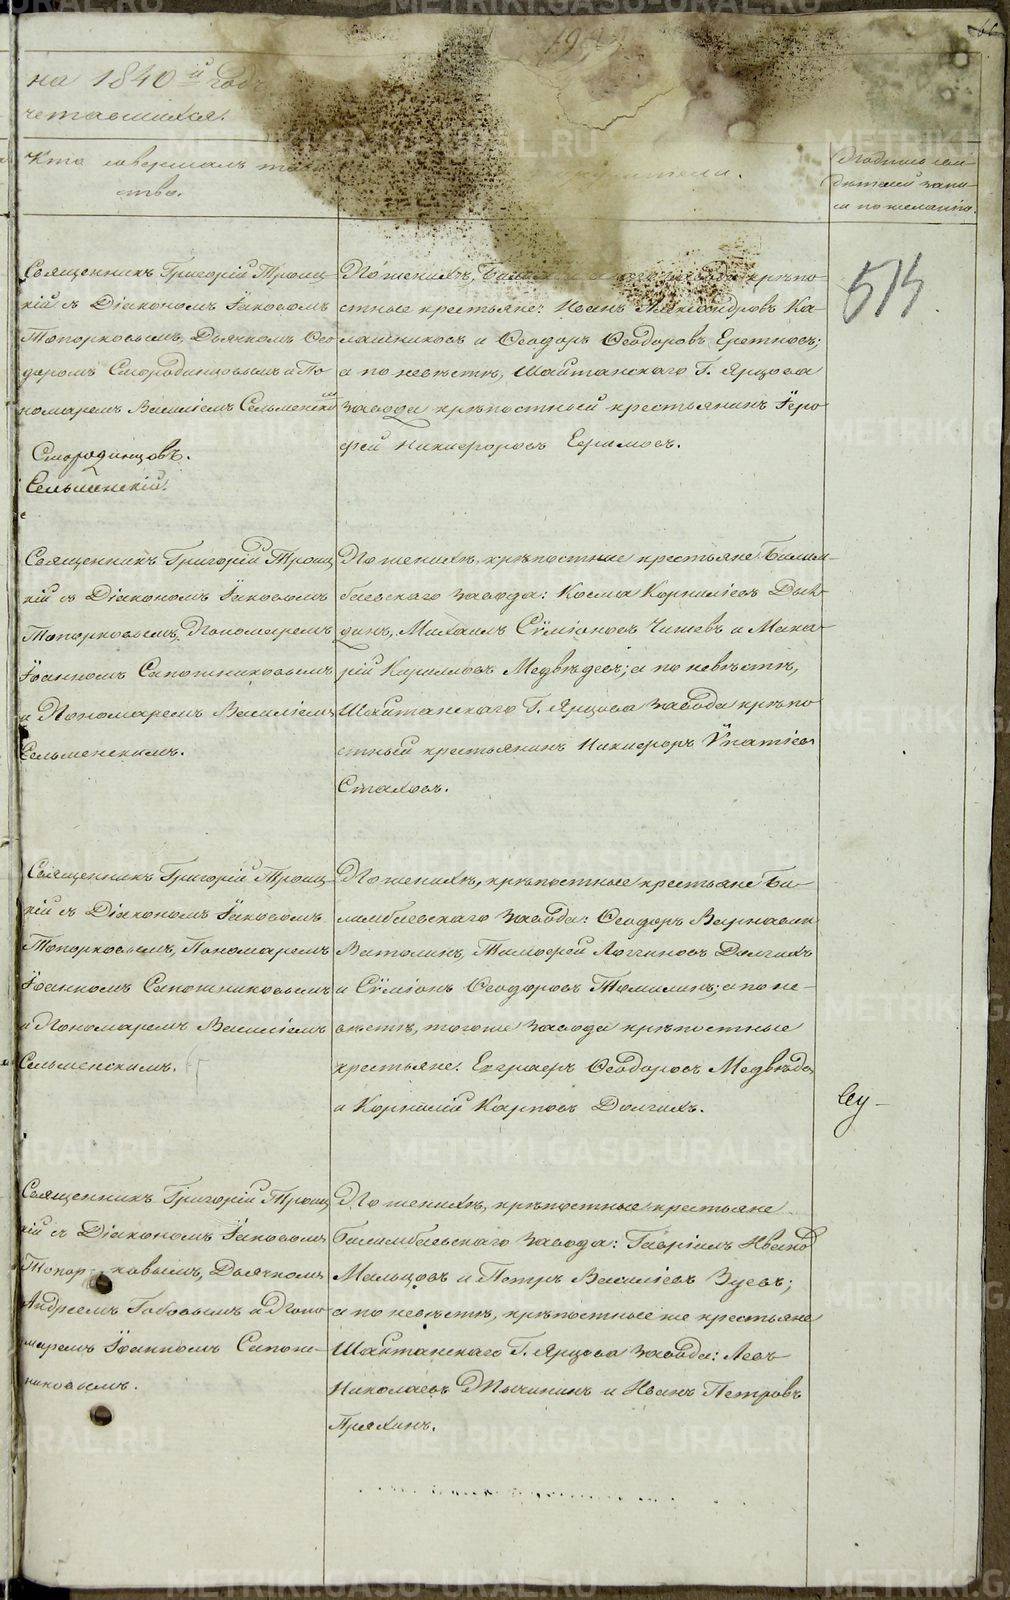 на 1840й годъ
четавшихся.
Кто совершалъ таин
ство.
поручители.
Подпись сви
дѣтелей запи
си по желанію.
Священникъ Григорій Троиц
кій съ Діакономъ Іаковомъ
Топорковымъ, Дьячкомъ Ѳео
доромъ Смородинцовымъ и По
номаремъ Василіемъ Сельменскимъ
Смородинцовъ.
Сельменскій.
По женихѣ, завода крѣпо
стные крестьяне: Иванъ Александровъ Ка
лашниковъ и Ѳеодоръ Ѳеодоровъ Еретновъ;
а по невѣстѣ, Шайтанскаго Г. Ярцова
завода крѣпостный крестьянинъ Іеро
фей Никифоровъ
514
Священникъ Григорій Троиц
кій съ Діакономъ Іаковомъ
Топорковымъ, Пономаремъ
Іоанномъ Сапожниковымъ
и Пономаремъ Василіемъ
Сельменскимъ.
По женихѣ, крѣпостные крестьяне Билим
баевскаго завода: Косма Корниліевъ
Михаилъ Сѵміоновъ Чижевъ и Мака
рій Кириловъ Медвѣдевъ; а по невѣстѣ,
Шайтанскаго Г. Ярцова завода крѣпо
стный крестьянинъ Никифоръ Ѵпатіевъ
Стаховъ.
Священникъ Григорій Троиц
кій съ Діакономъ Іаковомъ
Топорковымъ, Пономаремъ
Іоанномъ Сапожниковымъ
и Пономаремъ Василіемъ
Сельменскимъ.
По женихѣ, крѣпостные крестьяне Би
лимбаевскаго завода: Ѳеодоръ
Ватолинъ, Тимофей Логгиновъ Долгихъ
и Сѵміонъ Ѳеодоровъ Томилинъ; а по не
вѣстѣ, тогоже завода крѣпостные
крестьяне: Евграфъ Ѳеодоровъ Медвѣдевъ
и Корнилій Карповъ Долгихъ.
Священникъ Григорій Троиц
кій съ Діакономъ Іаковомъ
Топорковымъ, Дьячкомъ
Андреемъ и Поно
маремъ Іоанномъ Сапож
никовымъ.
По женихѣ, крѣпостные крестьяне
Билимбаевскаго завода: Гавріилъ Ивановъ
Мальцовъ и Петръ Василіевъ Зуевъ;
а по невѣстѣ, крѣпостные же крестьяне
Шайтанскаго Г. Ярцова завода: Левъ
Николаевъ и Иванъ Петровъ
Пряхинъ.
METRIKI.GASO-URAL.RU